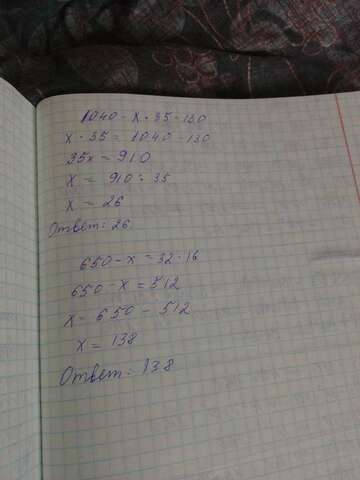 1040 - x · 35 = 130
x · 35 = 1040 - 130
35x = 910
x = 910 : 35
x = 26
Ответ: 26
650 - x = 32 · 16
650 - x = 512
x = 650 - 512
x = 138
Ответ: 138